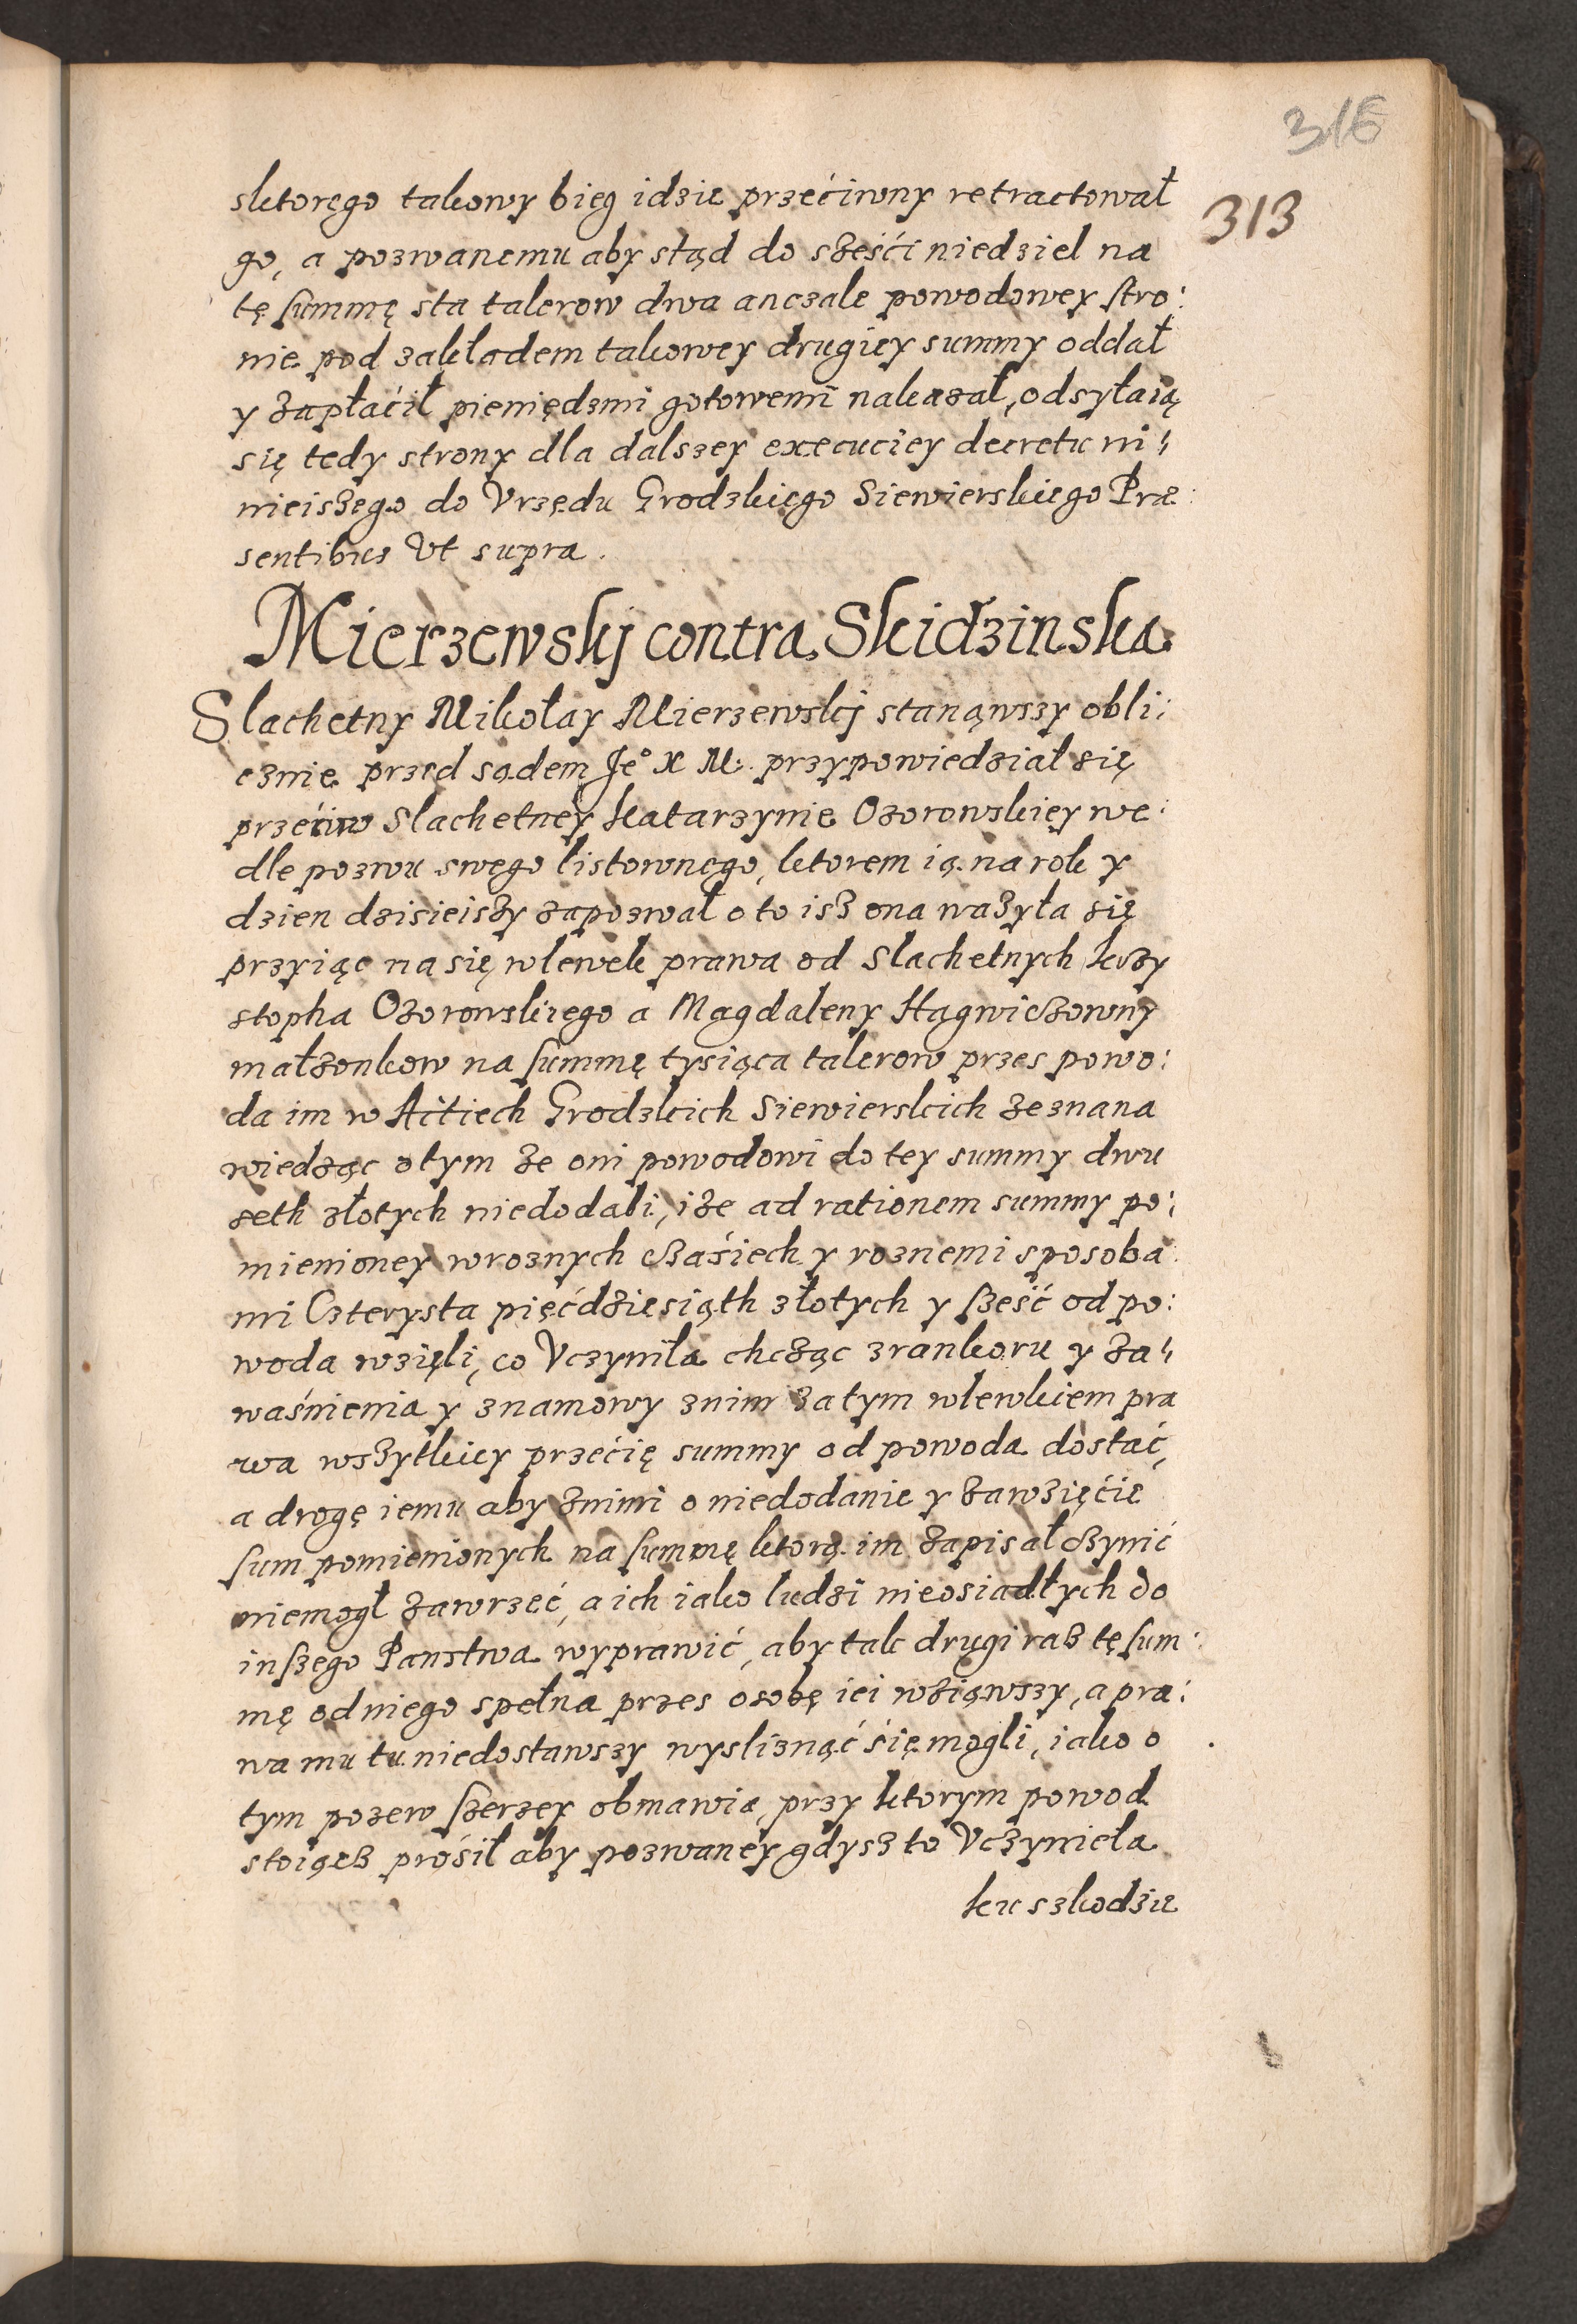 316
313
sktorego takowy bieg idzie przećiwny retractował
go, a pozwanemu aby stąd do sześći niedziel na
tę summę sta talerow dwa anczale powodowey stro:
nie pod zakładem takowey drugiey summy oddał
y zapłaćił pieniędzmi gotowemi nakazał, odsyłaią
się tedy strony dla dalszey execuciey decretu ni:
nieiszego do Vrzędu Grodzkiego Siewierskiego Præ:
sentibus Vt supra.
Mierzewskj contra Skidzinska
Slachetny Mikołay Mierzewskj stanąwszy obli:
cznie przed sądem Je° X M: przypowiedział się
przećiw Slachetney Katarzynie Ozorowskiey we:
dle pozwu swego listownego, ktorem ią na rok y
dzien dzisieiszy zapozwał o to isz ona ważyła się
przyiąc na się wlewek prawa od Slachetnych Krzy
stopha Ozorowskiego a Magdaleny Hagwiczowny
małzonkow na summę tysiąca talerow przes powo:
da im w Actiech Grodzkich Siewierskich zeznana
wiedząc o tym ze oni powodowi do tey summy dwu
seth złotych niedodali, i ze ad rationem summy po:
mienioney w roznych czaśiech y roznemi sposoba:
mi Czterysta pięćdziesiąth złotych y sześć od po:
woda wzięli, co Vczyniła chcząc z rankoru y za:
waśnienia y z namowy z nim za tym wlewkiem pra
wa wszytkiey przećię summy od powoda dostać,
a drogę iemu aby z nimi o niedodanie y zawzięćie
sum pomienionych na summę ktorą im zapisał czynić
niemogł zawrzeć, a ich iako ludzi nieosiadłych do
inszego Panstwa wyprawić, aby tak drugi raz tę sum:
mę od niego spełna przes osobę iei wziąwszy, a pra:
wa mu tu niedostawszy wysliznąć się mogli, iako o
tym pozew szerzey obmawia, przy ktorym powod
stoiącz prośił aby pozwaney gdysz to Vczyniela
ku szkodzie